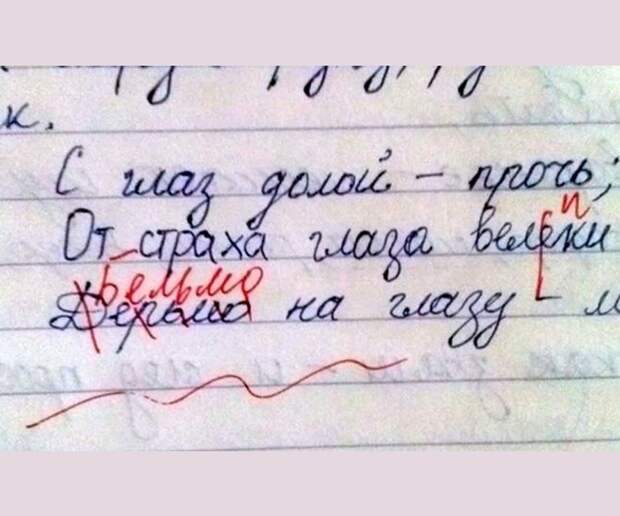 к.
С глаз долой – прочь;
п
От страха глаза велеки
Бельмо
Дерьмо на глазу –